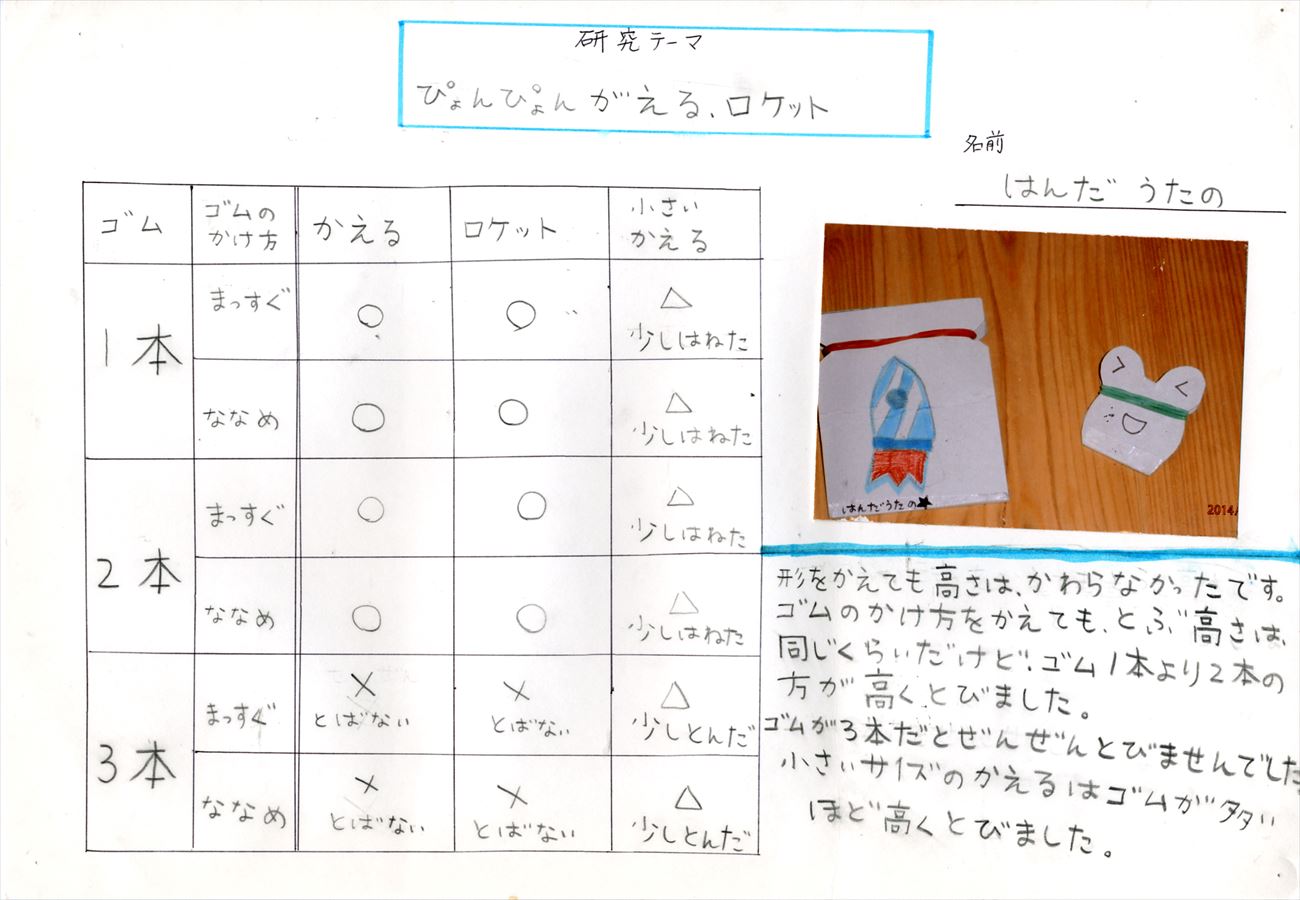 研究テーマ
ぴょんぴょんがえる、ロケット
名前
はんだ うたの
ゴム ゴムの かけ方 かえる ロケット 小さい かえる
1本 まっすぐ ○ ○ △ 少しはねた
ななめ ○ ○ △ 少しはねた
2本 まっすぐ ○ ○ △ 少しはねた
ななめ ○ ○ △ 少しはねた
3本 まっすぐ × とばない × とばない △ 少しとんだ
ななめ × とばない × とばない △ 少しとんだ
はんだうたの★
2014/
形をかえても高さは、かわらなかったです。
ゴムのかけ方をかえても、とぶ高さは、
同じくらいだけど、ゴム1本より2本の
方が高くとびました。
ゴムが3本だとぜんぜんとびませんでした
小さいサイズのかえるはゴムが多い
ほど高くとびました。